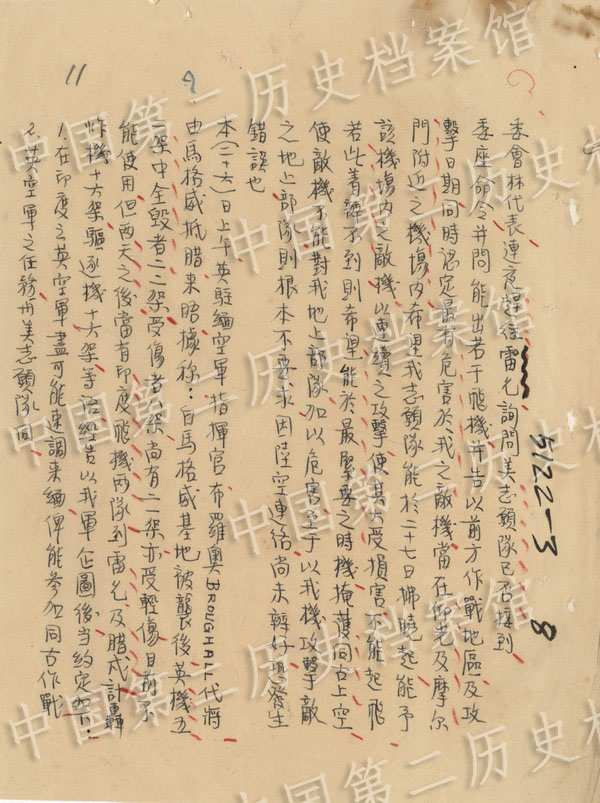 11
5122-3
8
委會林代表連夜趕往雷允詢問美志願隊已否接到
委座命令并問能出若干飛機并告以前方作戰地區及攻
擊日期同時認定最有危害於我之敵機當在仰光及摩尔
門附近之機場內希望我志願隊能於二十七日拂曉起能予
該機場內之敵機以連續之攻擊使其大受損害不能起飛
若此着辦不到則希望能於最緊要之時機掩護同古上空
使敵機不能對我地上部隊加以危害至于以我機攻擊敵
之地上部隊則根本不要求因陸空連絡尚未辦好恐發生
錯誤也
本(二十六)日上午英駐緬空軍指揮官布羅奧BROUGHALL代將
由馬格威抵腊来晤據称:自馬格威基地被襲後英機五
二架中全毀者二二架受傷者八架尚有二二架亦受輕傷目前不
能使用但两天之後當有印度飛機两隊到雷允及腊戍計轟
炸機十六架驅逐機十六架等語經告以我軍企圖後当約定如下:
1.在印度之英空軍盡可能速調来緬俾能參加同古作戰
2.英空軍之任務与美志願隊同
中国第二历史档案馆
中国第二历史档案馆
中国第二历史档案馆
中国第二历史档案馆